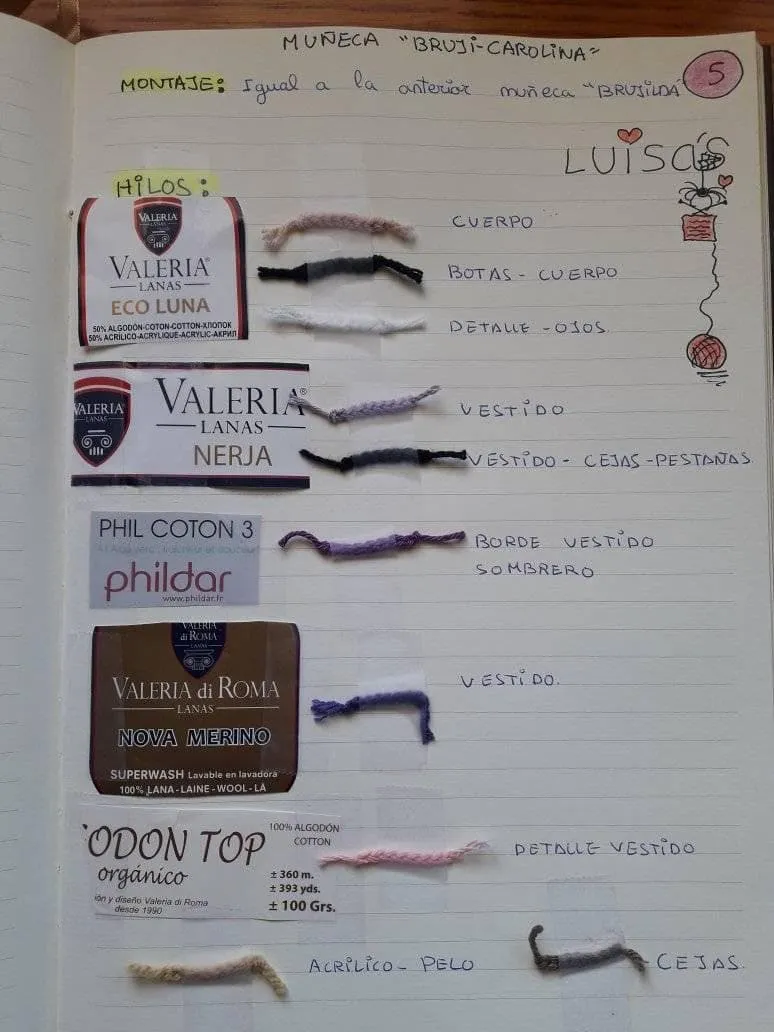 MUÑECA "BRUJI-CAROLINA"
5
MONTAJE: Igual a la anterior muñeca "BRUJILDA"
LUISA'S
HILOS:
VALERIA
LANAS
VALERIA
LANAS
ECO LUNA
50% ALGODÓN-COTON-COTTON-ХЛОПОК
50% ACRÍLICO-ACRYLIQUE-ACRYLIC-АКРИЛ
CUERPO
BOTAS - CUERPO
DETALLE - OJOS
VALERIA
LANAS
VALERIA®
LANAS
NERJA
VESTIDO
VESTIDO - CEJAS - PESTAÑAS
PHIL COTON 3
phildar
www.phildar.fr
BORDE VESTIDO
SOMBRERO
VALERIA
di ROMA
LANAS
VALERIA di ROMA
LANAS
NOVA MERINO
SUPERWASH Lavable en lavadora
100% LANA - LAINE - WOOL - LÃ
VESTIDO.
ODON TOP
orgánico
100% ALGODÓN
COTTON
± 360 m.
± 393 yds.
± 100 Grs.
ión y diseño Valeria di Roma
desde 1990
DETALLE VESTIDO
ACRILICO - PELO
CEJAS.